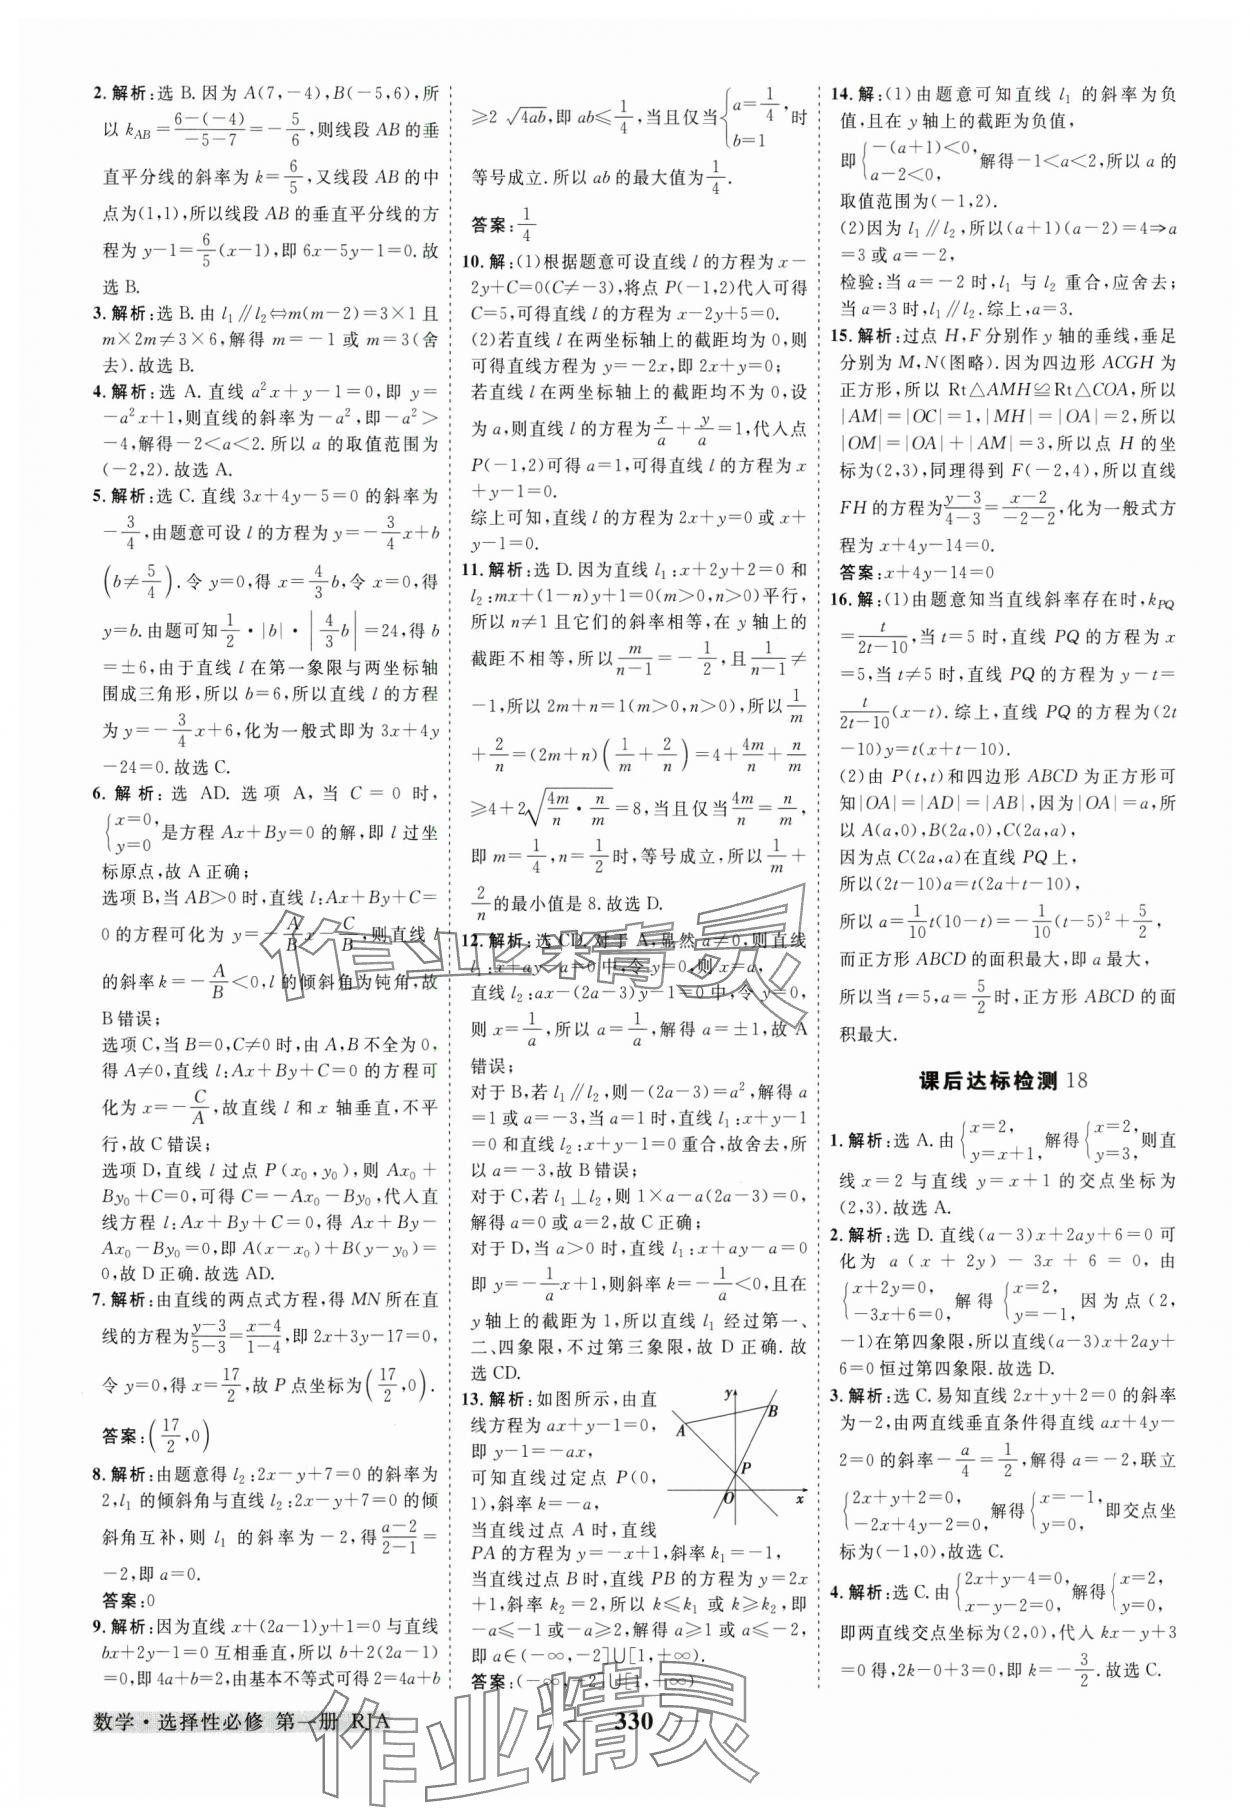 2. 解析:选 B.因为 A(7,-4),B(-5,6),所
以 k_{AB}=\frac{6-(-4)}{-5-7}=-\frac{5}{6},则线段 AB 的垂
直平分线的斜率为 k=\frac{6}{5},又线段 AB 的中
点为(1,1),所以线段 AB 的垂直平分线的方
程为 y-1=\frac{6}{5}(x-1),即 6x-5y-1=0.故
选 B.
3. 解析:选 B.由 l₁∥l₂⇔m(m-2)=3×1 且
m×2m≠3×6,解得 m=-1 或 m=3(舍
去).故选 B.
4. 解析:选 A.直线 a²x+y-1=0,即 y=
-a²x+1,则直线的斜率为-a²,即-a²>
-4,解得-2<a<2.所以 a 的取值范围为
(-2,2).故选 A.
5. 解析:选 C.直线 3x+4y-5=0 的斜率为
-\frac{3}{4},由题意可设 l 的方程为 y=-\frac{3}{4}x+b
(b≠\frac{5}{4}).令 y=0,得 x=\frac{4}{3}b,令 x=0,得
y=b.由题可知\frac{1}{2}·|b|·|\frac{4}{3}b|=24,得 b
=±6,由于直线 l 在第一象限与两坐标轴
围成三角形,所以 b=6,所以直线 l 的方程
为 y=-\frac{3}{4}x+6,化为一般式即为 3x+4y
-24=0.故选 C.
6. 解析:选 AD.选项 A,当 C=0 时,
{x=0, y=0 是方程 Ax+By=0 的解,即 l 过坐
标原点,故 A 正确;
选项 B,当 AB>0 时,直线 l:Ax+By+C=
0 的方程可化为 y=-\frac{A}{B}x-\frac{C}{B},则直线 l
的斜率 k=-\frac{A}{B}<0,l 的倾斜角为钝角,故
B 错误;
选项 C,当 B=0,C≠0 时,由 A,B 不全为 0,
得 A≠0,直线 l:Ax+By+C=0 的方程可
化为 x=-\frac{C}{A},故直线 l 和 x 轴垂直,不平
行,故 C 错误;
选项 D,直线 l 过点 P(x₀,y₀),则 Ax₀+
By₀+C=0,可得 C=-Ax₀-By₀,代入直
线方程 l:Ax+By+C=0,得 Ax+By-
Ax₀-By₀=0,即 A(x-x₀)+B(y-y₀)=
0,故 D 正确.故选 AD.
7. 解析:由直线的两点式方程,得 MN 所在直
线的方程为\frac{y-3}{5-3}=\frac{x-4}{1-4},即 2x+3y-17=0,
令 y=0,得 x=\frac{17}{2},故 P 点坐标为(\frac{17}{2},0).
答案:(\frac{17}{2},0)
8. 解析:由题意得 l₂:2x-y+7=0 的斜率为
2,l₁ 的倾斜角与直线 l₂:2x-y+7=0 的倾
斜角互补,则 l₁ 的斜率为-2,得\frac{a-2}{2-1}=
-2,即 a=0.
答案:0
9. 解析:因为直线 x+(2a-1)y+1=0 与直线
bx+2y-1=0 互相垂直,所以 b+2(2a-1)
=0,即 4a+b=2,由基本不等式可得 2=4a+b
≥2\sqrt{4ab},即 ab≤\frac{1}{4},当且仅当{a=\frac{1}{4}, b=1 时
等号成立.所以 ab 的最大值为\frac{1}{4}.
答案:\frac{1}{4}
10. 解:(1)根据题意可设直线 l 的方程为 x-
2y+C=0(C≠-3),将点 P(-1,2)代入可得
C=5,可得直线 l 的方程为 x-2y+5=0.
(2)若直线 l 在两坐标轴上的截距均为 0,则
可得直线方程为 y=-2x,即 2x+y=0;
若直线 l 在两坐标轴上的截距均不为 0,设
为 a,则直线 l 的方程为\frac{x}{a}+\frac{y}{a}=1,代入点
P(-1,2)可得 a=1,可得直线 l 的方程为 x
+y-1=0.
综上可知,直线 l 的方程为 2x+y=0 或 x+
y-1=0.
11. 解析:选 D.因为直线 l₁:x+2y+2=0 和
l₂:mx+(1-n)y+1=0(m>0,n>0)平行,
所以 n≠1 且它们的斜率相等,在 y 轴上的
截距不相等,所以\frac{m}{n-1}=-\frac{1}{2},且\frac{1}{n-1}≠
-1,所以 2m+n=1(m>0,n>0),所以\frac{1}{m}
+\frac{2}{n}=(2m+n)(\frac{1}{m}+\frac{2}{n})=4+\frac{4m}{n}+\frac{n}{m}
≥4+2\sqrt{\frac{4m}{n}·\frac{n}{m}}=8,当且仅当\frac{4m}{n}=\frac{n}{m},
即 m=\frac{1}{4},n=\frac{1}{2}时,等号成立,所以\frac{1}{m}+
\frac{2}{n}的最小值是 8.故选 D.
12. 解析:选 CD.对于 A,显然 a≠0,则直线
l₁:x+ay-a=0 中,令 y=0,则 x=a,
直线 l₂:ax-(2a-3)y-1=0 中,令 y=0,
则 x=\frac{1}{a},所以 a=\frac{1}{a},解得 a=±1,故 A
错误;
对于 B,若 l₁∥l₂,则-(2a-3)=a²,解得 a
=1 或 a=-3,当 a=1 时,直线 l₁:x+y-1
=0 和直线 l₂:x+y-1=0 重合,故舍去,所
以 a=-3,故 B 错误;
对于 C,若 l₁⊥l₂,则 1×a-a(2a-3)=0,
解得 a=0 或 a=2,故 C 正确;
对于 D,当 a>0 时,直线 l₁:x+ay-a=0
即 y=-\frac{1}{a}x+1,则斜率 k=-\frac{1}{a}<0,且在
y 轴上的截距为 1,所以直线 l₁ 经过第一、
二、四象限,不过第三象限,故 D 正确.故
选 CD.
13. 解析:如图所示,由直
线方程为 ax+y-1=0,
即 y-1=-ax,
可知直线过定点 P(0,
1),斜率 k=-a,
y
B
A
P
O
x
当直线过点 A 时,直线
PA 的方程为 y=-x+1,斜率 k₁=-1,
当直线过点 B 时,直线 PB 的方程为 y=2x
+1,斜率 k₂=2,所以 k≤k₁ 或 k≥k₂,即
-a≤-1 或-a≥2,解得 a≥1 或 a≤-2,
即 a∈(-∞,-2]∪[1,+∞).
答案:(-∞,-2]∪[1,+∞)
14. 解:(1)由题意可知直线 l₁ 的斜率为负
值,且在 y 轴上的截距为负值,
即{-(a+1)<0, a-2<0, 解得-1<a<2,所以 a 的
取值范围为(-1,2).
(2)因为 l₁∥l₂,所以(a+1)(a-2)=4⇒a
=3 或 a=-2,
检验:当 a=-2 时,l₁ 与 l₂ 重合,应舍去;
当 a=3 时,l₁∥l₂.综上,a=3.
15. 解析:过点 H,F 分别作 y 轴的垂线,垂足
分别为 M,N(图略).因为四边形 ACGH 为
正方形,所以 Rt△AMH≌Rt△COA,所以
|AM|=|OC|=1,|MH|=|OA|=2,所以
|OM|=|OA|+|AM|=3,所以点 H 的坐
标为(2,3),同理得到 F(-2,4),所以直线
FH 的方程为\frac{y-3}{4-3}=\frac{x-2}{-2-2},化为一般式方
程为 x+4y-14=0.
答案:x+4y-14=0
16. 解:(1)由题意知当直线斜率存在时,k_{PQ}
=\frac{t}{2t-10},当 t=5 时,直线 PQ 的方程为 x
=5,当 t≠5 时,直线 PQ 的方程为 y-t=
\frac{t}{2t-10}(x-t).综上,直线 PQ 的方程为(2t
-10)y=t(x+t-10).
(2)由 P(t,t)和四边形 ABCD 为正方形可
知|OA|=|AD|=|AB|,因为|OA|=a,所
以 A(a,0),B(2a,0),C(2a,a),
因为点 C(2a,a)在直线 PQ 上,
所以(2t-10)a=t(2a+t-10),
所以 a=\frac{1}{10}t(10-t)=-\frac{1}{10}(t-5)²+\frac{5}{2},
而正方形 ABCD 的面积最大,即 a 最大,
所以当 t=5,a=\frac{5}{2}时,正方形 ABCD 的面
积最大.
课后达标检测 18
1. 解析:选 A.由{x=2, y=x+1, 解得{x=2, y=3, 则直
线 x=2 与直线 y=x+1 的交点坐标为
(2,3).故选 A.
2. 解析:选 D.直线(a-3)x+2ay+6=0 可
化为 a(x+2y)-3x+6=0,由
{x+2y=0, -3x+6=0, 解得{x=2, y=-1, 因为点(2,
-1)在第四象限,所以直线(a-3)x+2ay+
6=0 恒过第四象限.故选 D.
3. 解析:选 C.易知直线 2x+y+2=0 的斜率
为-2,由两直线垂直条件得直线 ax+4y-
2=0 的斜率-\frac{a}{4}=\frac{1}{2},解得 a=-2,联立
{2x+y+2=0, -2x+4y-2=0, 解得{x=-1, y=0, 即交点坐
标为(-1,0),故选 C.
4. 解析:选 C.由{2x+y-4=0, x-y-2=0, 解得{x=2, y=0,
即两直线交点坐标为(2,0),代入 kx-y+3
=0 得,2k-0+3=0,即 k=-\frac{3}{2}.故选 C.
数学·选择性必修 第一册 RJA
330
作业精灵
作业精灵